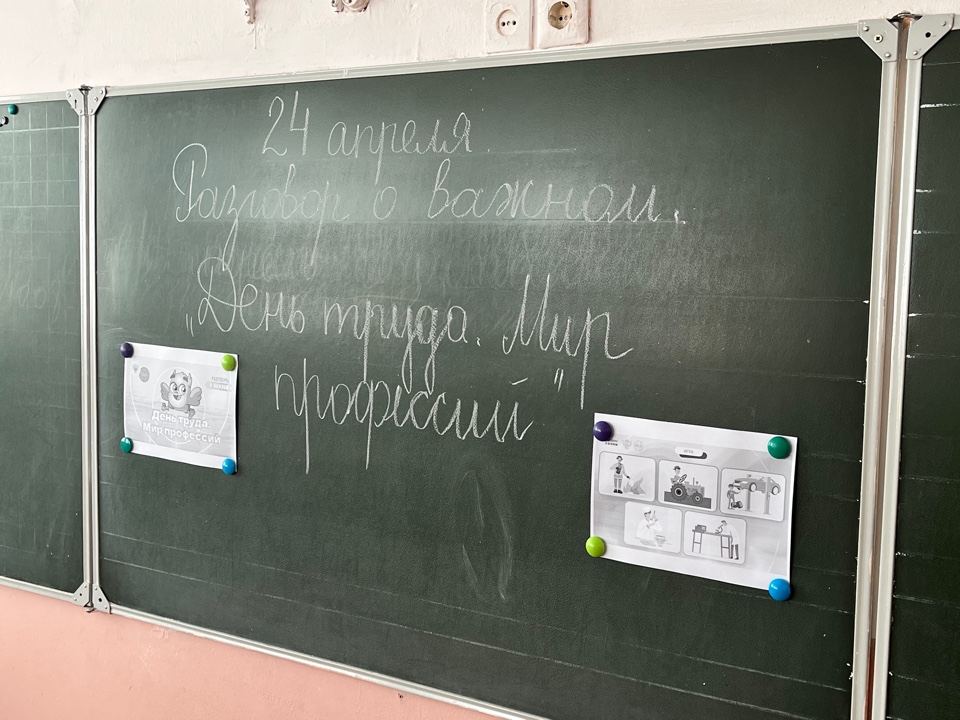 24 апреля.
Разговор о важном.
„День труда. Мир
профессий"
День труда.
Мир профессий